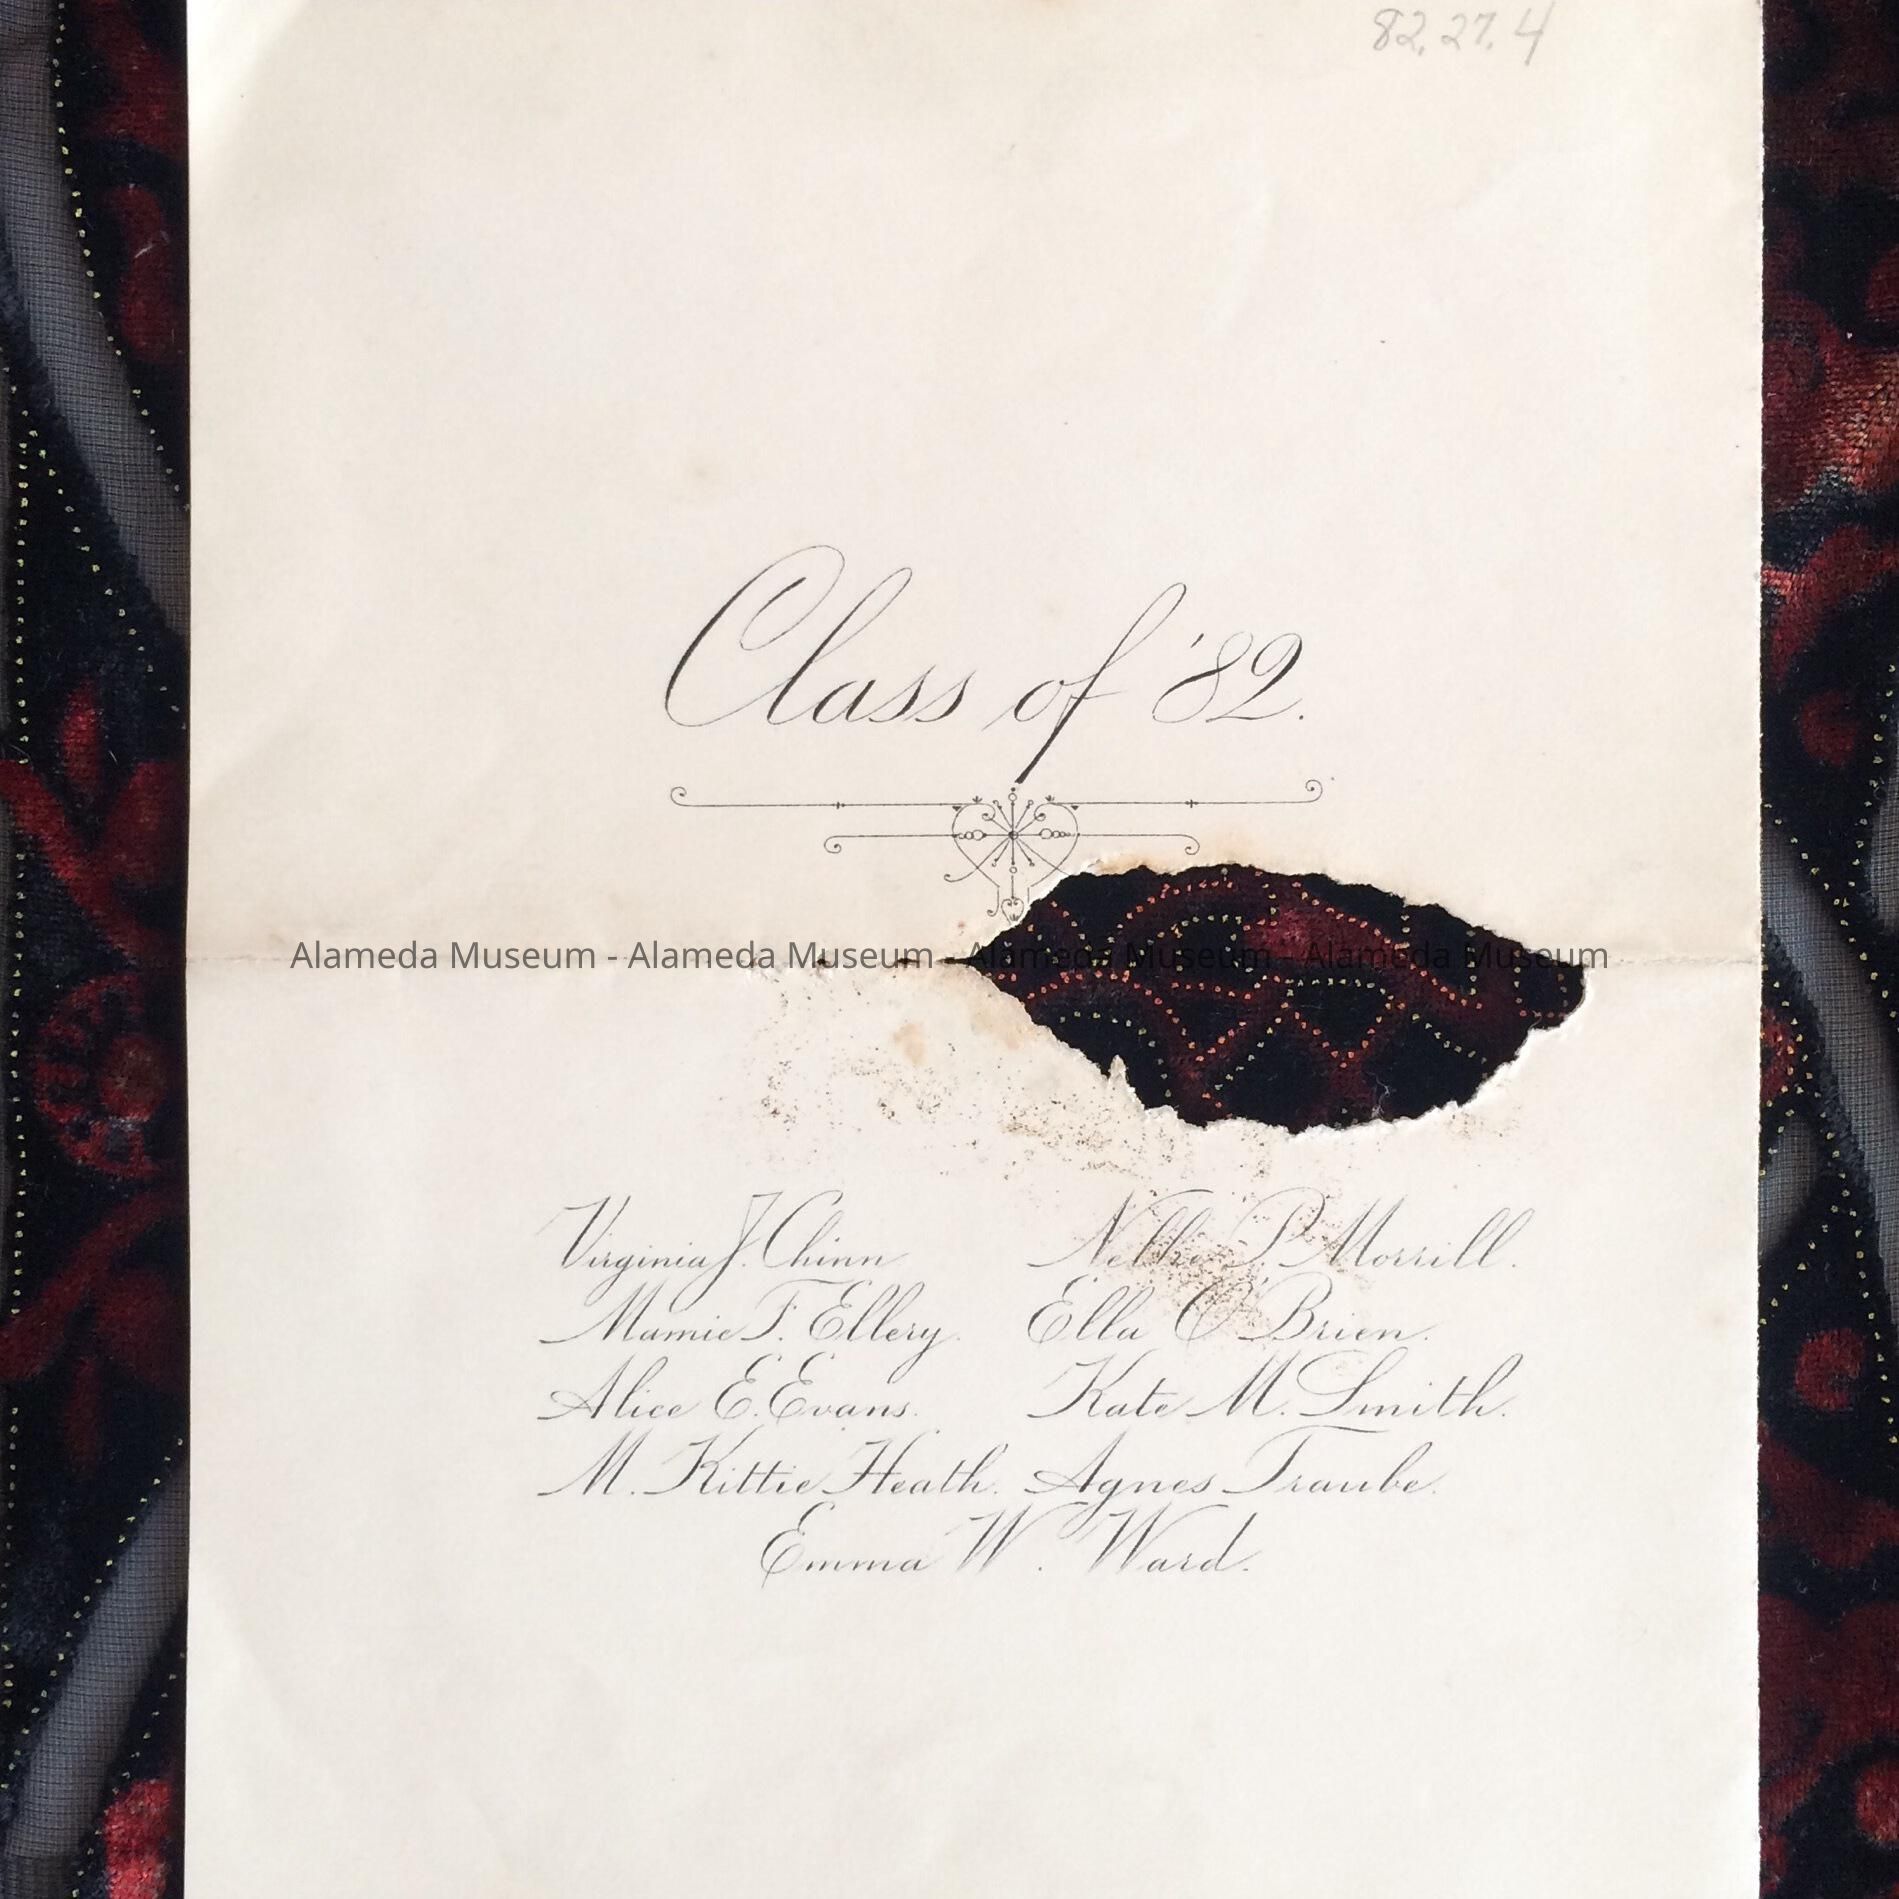 82.27.4
Class of '82.
Alameda Museum - Alameda Museum - Alameda Museum - Alameda Museum
Virginia J. Chinn Nellie P. Morrill.
Mamie F. Ellery. Ella O'Brien.
Alice E. Evans. Kate M. Smith.
M. Kittie Heath. Agnes Traube.
Emma W. Ward.